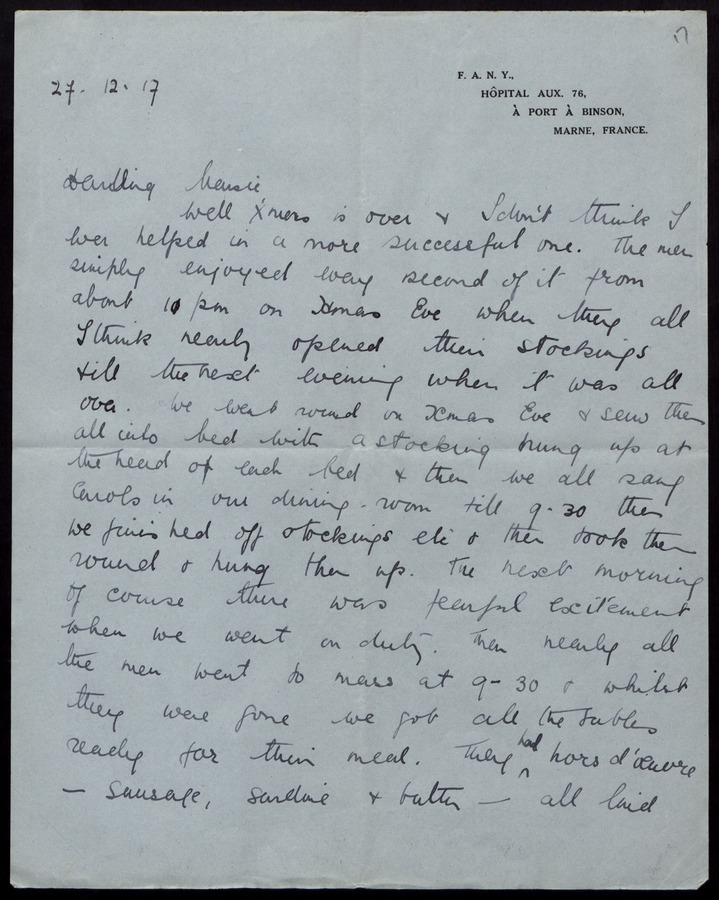 27. 12. 17
F. A. N. Y.,
HÔPITAL AUX. 76,
À PORT À BINSON,
MARNE, FRANCE.
Darling
Well Xmas is over & I don't think I
ever helped in a more successful one. The men
simply enjoyed every second of it from
about 10 pm on Xmas Eve when they all
I think nearly opened their stockings
till the next evening when it was all
over. We went round on Xmas Eve & saw them
all into bed with a stocking hung up at
the head of each bed & then we all sang
Carols in our dining-room till 9-30 then
we finished off stockings etc & then took them
round & hung them up. The next morning
of course there was fearful excitement
when we went on duty. Then nearly all
the men went to mass at 9-30 & whilst
they were gone we got all the tables
ready for their meal. They had hors d'œuvre
— Sausage, Sardine & butter — all laid